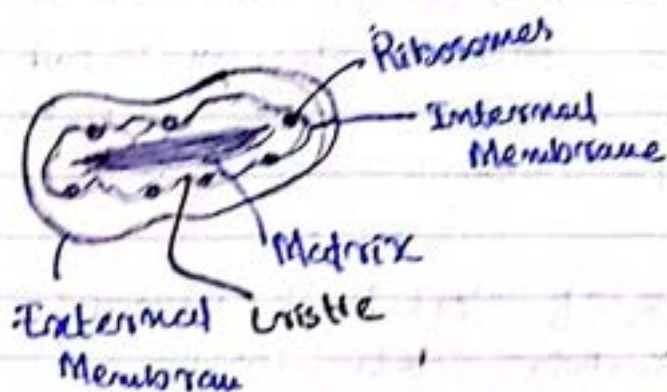 Ribosomes
Internal
Membrane
Matrix
External
Membran
cristie